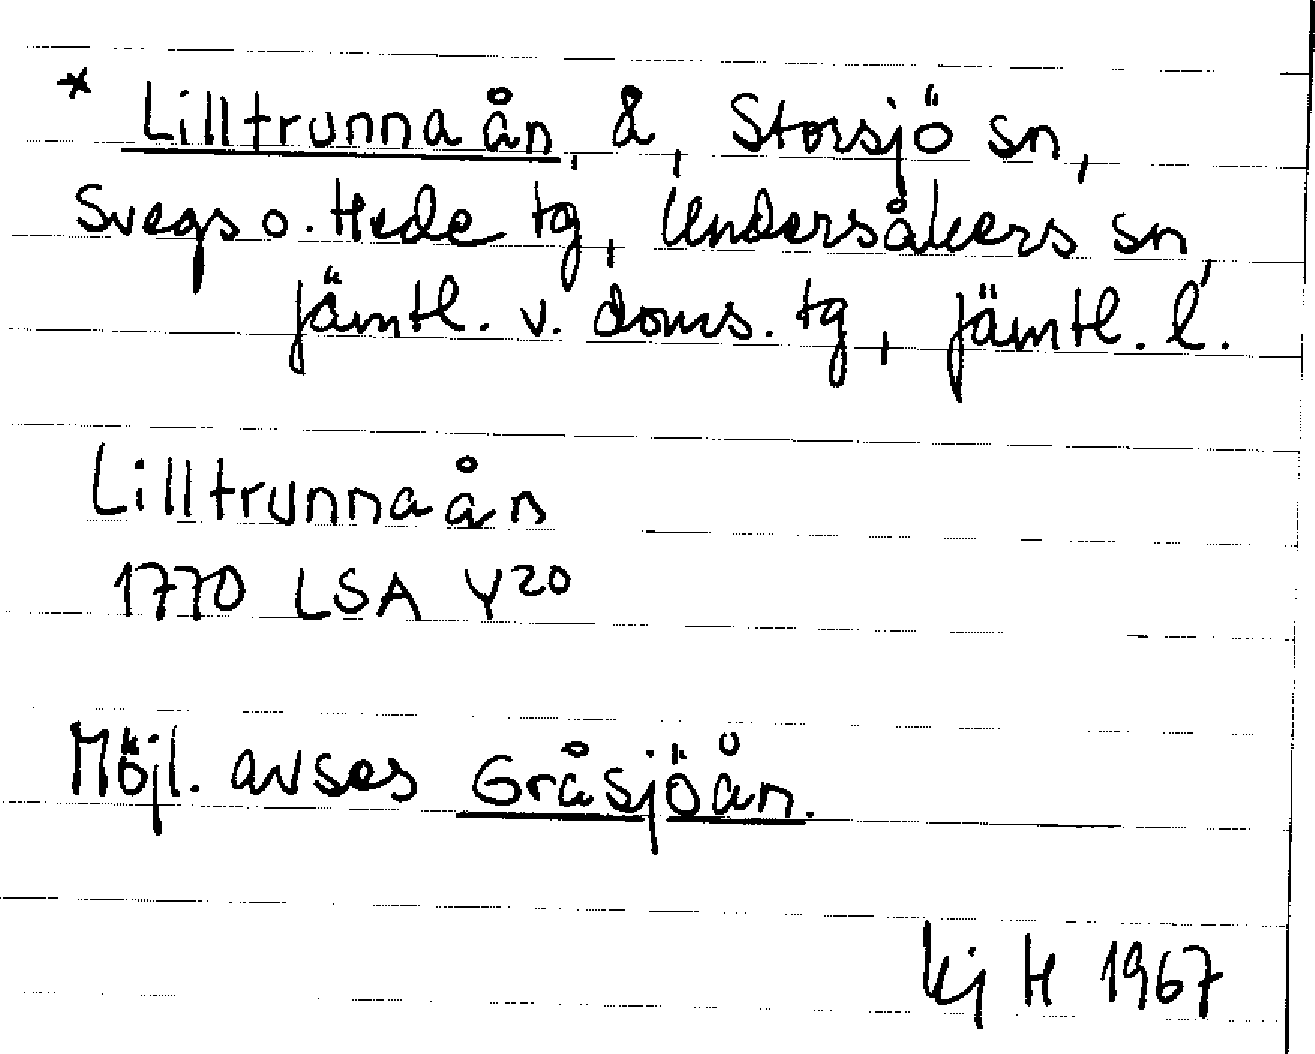 * Lilltrunnaån, å, Storsjö sn,
Svegs o. Hede tg, Undersåkers sn,
Jämtl. v. doms. tg, Jämtl. l.
Lilltrunnaån
1770 LSA Y20
Möjl. avses Gråsjöån.
kj H 1967